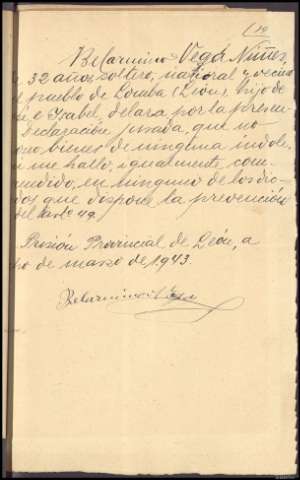 (19
Belarmino Vega Núñez,
32 años, soltero, natural y vecino
pueblo de Lomba (León), hijo de
e Ysabel, delara por la presen
declaración jurada, que no
bienes de ninguna indole
me hallo, igualmente, com
endido, en ninguno de los dic
que dispone la prevención
del
Prisión Provincial de León, a
de marzo de 1943.
Belarmino Vega